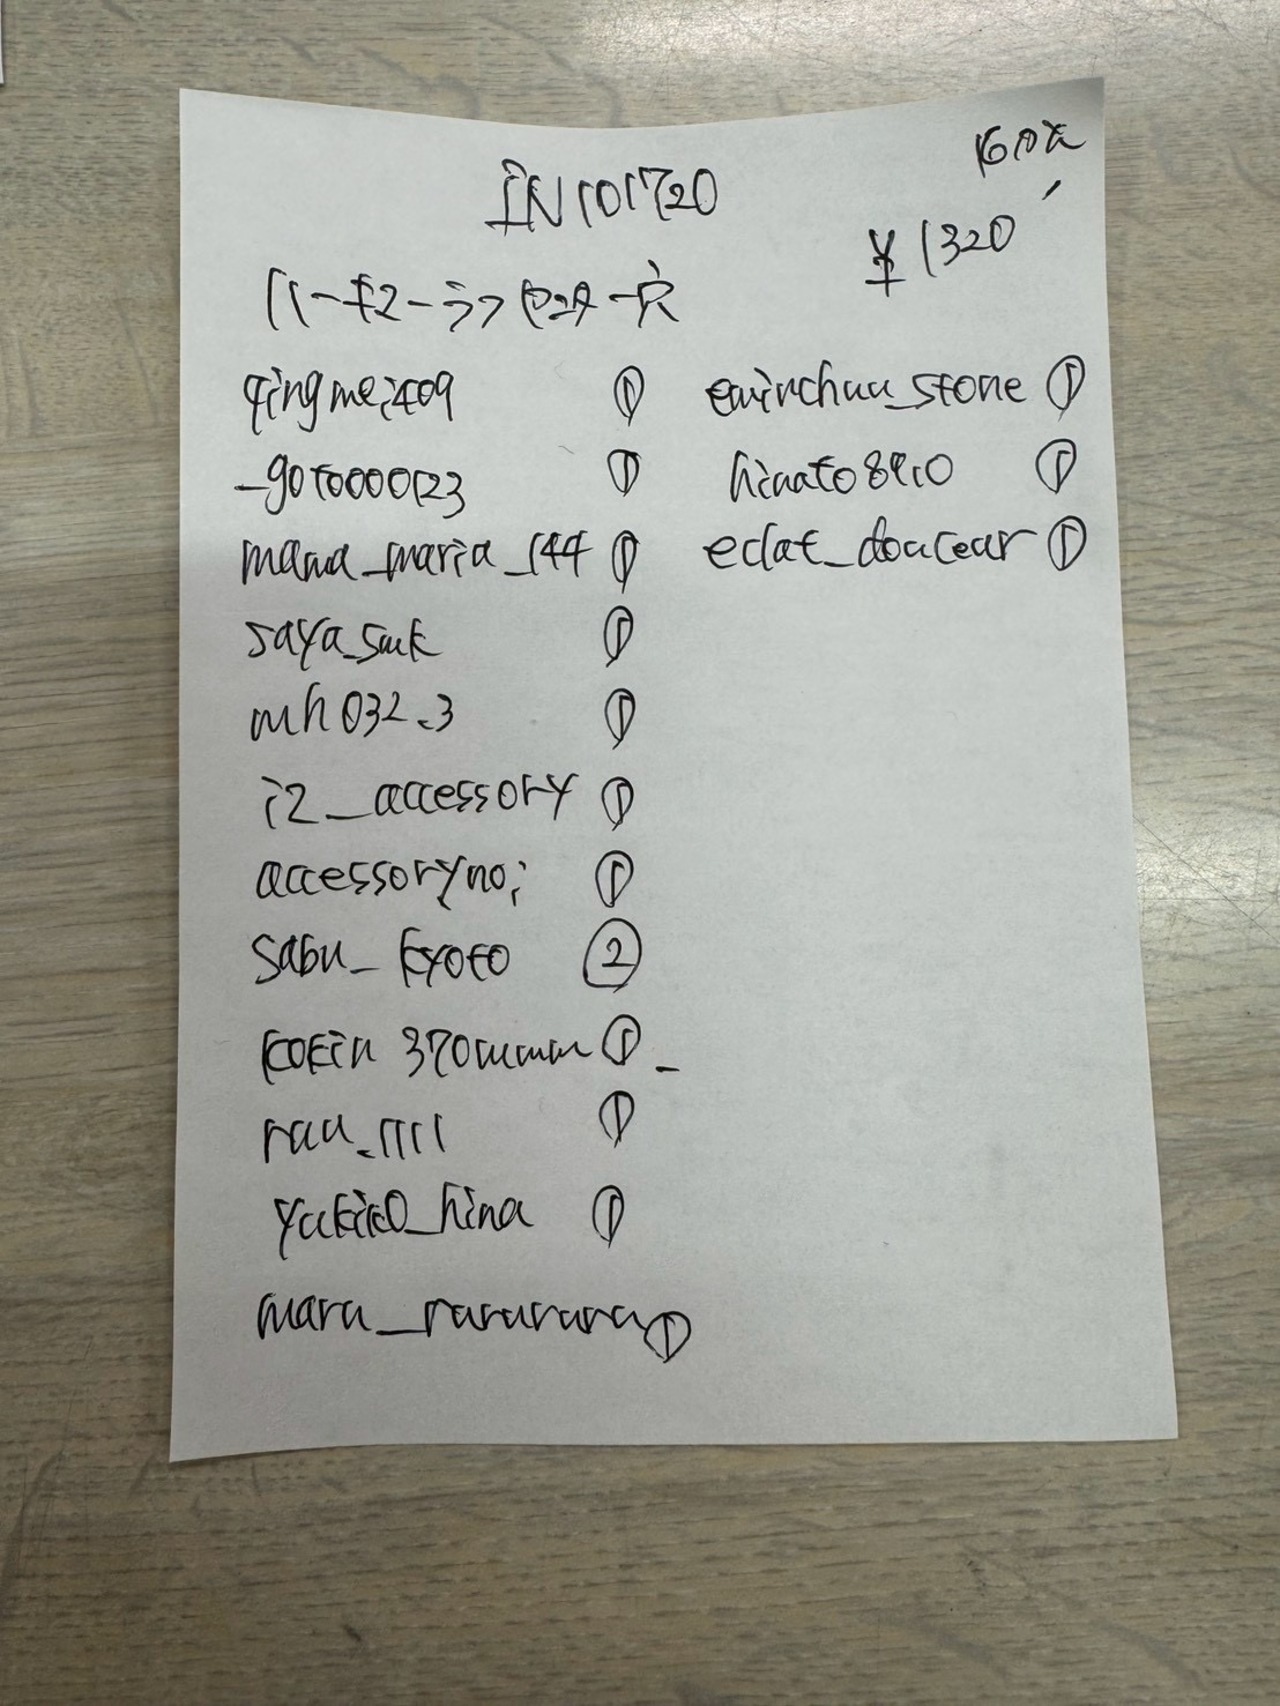 IN101720
¥1320
qingmei409 ①
_goto000123 ①
mana_maria_144 ①
saya_smk ①
mh032_3 ①
i2_accessory ①
accessorynoi ①
sabu_kyoto ②
kokin370mmm ①
rau_1111 ①
yukiko_hina ①
maru_rarararara ①
emirchuu_stone ①
hinato8910 ①
eclat_douceur ①